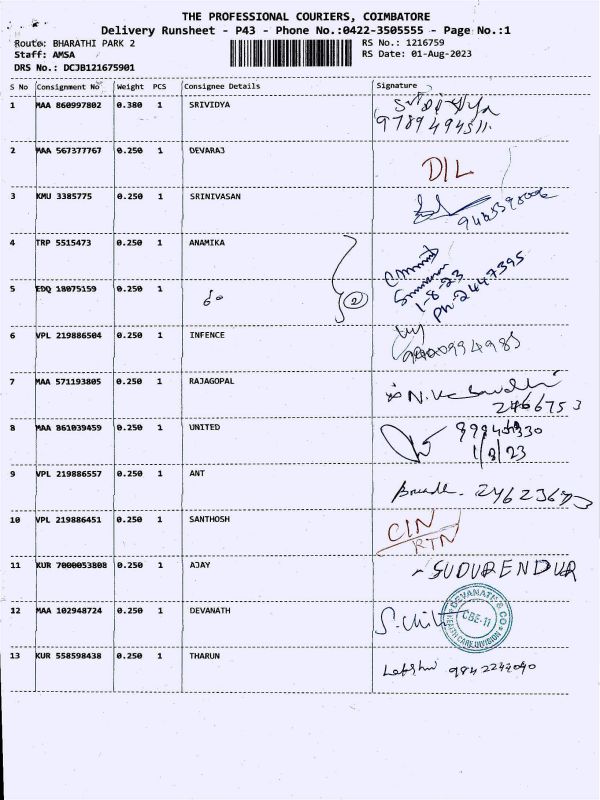 THE PROFESSIONAL COURIERS, COIMBATORE
Delivery Runsheet - P43 - Phone No.:0422-3505555 - Page No.:1
Route: BHARATHI PARK 2 RS No.: 1216759
Staff: AMSA RS Date: 01-Aug-2023
DRS No.: DCJB121675901
S No Consignment No Weight PCS Consignee Details Signature
1 MAA 860997802 0.380 1 SRIVIDYA Srividya
9789494511
2 MAA 567377767 0.250 1 DEVARAJ
DIL
3 KMU 3385775 0.250 1 SRINIVASAN
4 TRP 5515473 0.250 1 ANAMIKA
5 EDQ 18075159 0.250 1
2
1-8-23
Ph: 2447395
6 VPL 219886504 0.250 1 INFENCE
7 MAA 571193805 0.250 1 RAJAGOPAL
8 MAA 861039459 0.250 1 UNITED
1/8/23
9 VPL 219886557 0.250 1 ANT
10 VPL 219886451 0.250 1 SANTHOSH
CIN
RTN
11 KUR 7000053808 0.250 1 AJAY
SUDURENDUR
12 MAA 102948724 0.250 1 DEVANATH
DEVANATH & CO.
CBE-11
HEALTH CARE DIVISION
13 KUR 558598438 0.250 1 THARUN